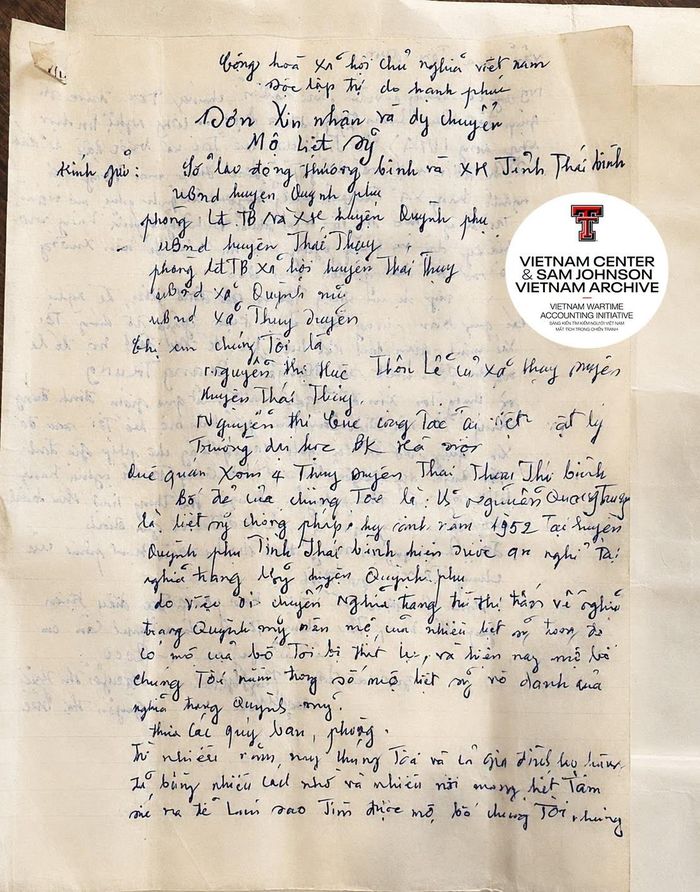 Cộng hoà xã hội chủ nghĩa việt nam
Độc lập tự do hạnh phúc
Đơn Xin nhận và dy chuyển
Mộ liệt sỹ
Kính gửi: Sở lao động thương binh và XH Tỉnh Thái bình
UBnd huyện Quỳnh phụ
phòng Lđ TB Và XH huyện Quỳnh phụ
UBnd huyện Thái Thụy
phòng LĐTB xã hội huyện Thái Thụy
UBnd xã Quỳnh mỹ
UBnd xã Thụy duyên
Chị em chúng Tôi là
Nguyễn thị Huê Thôn xã thụy duyên
Huyện Thái Thụy
Nguyễn thị công Tác Tại viện vật lý
Trường đại học BK Hà nội
Quê quán Xóm 4 Thụy duyên Thái Thụy Thái bình
Bố đẻ của chúng Tôi là Nguyễn Quang Trung
là liệt sỹ chống pháp hy sinh năm 1952 Tại huyện
Quỳnh phụ Tỉnh Thái bình hiện được an nghỉ Tại
nghĩa trang huyện Quỳnh phụ
do việc di chuyển Nghĩa trang từ thị trấn về nghĩa
trang Quỳnh mỹ nên mộ của nhiều liệt sỹ trong đó
có mộ của bố Tôi bị thất lạc, và hiện nay mộ bố
chúng Tôi nằm trong số mộ liệt sỹ vô danh của
nghĩa trang Quỳnh mỹ.
Thưa các quý ban, phòng.
Từ nhiều năm nay chúng Tôi và cả gia đình
đã bằng nhiều cách nhờ và nhiều nơi mong hết Tâm
ra để Làm sao Tìm được mộ bố chúng Tôi, nhưng
VIETNAM CENTER
& SAM JOHNSON
VIETNAM ARCHIVE
VIETNAM WARTIME
ACCOUNTING INITIATIVE
SÁNG KIẾN TÌM KIẾM NGƯỜI VIỆT NAM
MẤT TÍCH TRONG CHIẾN TRANH